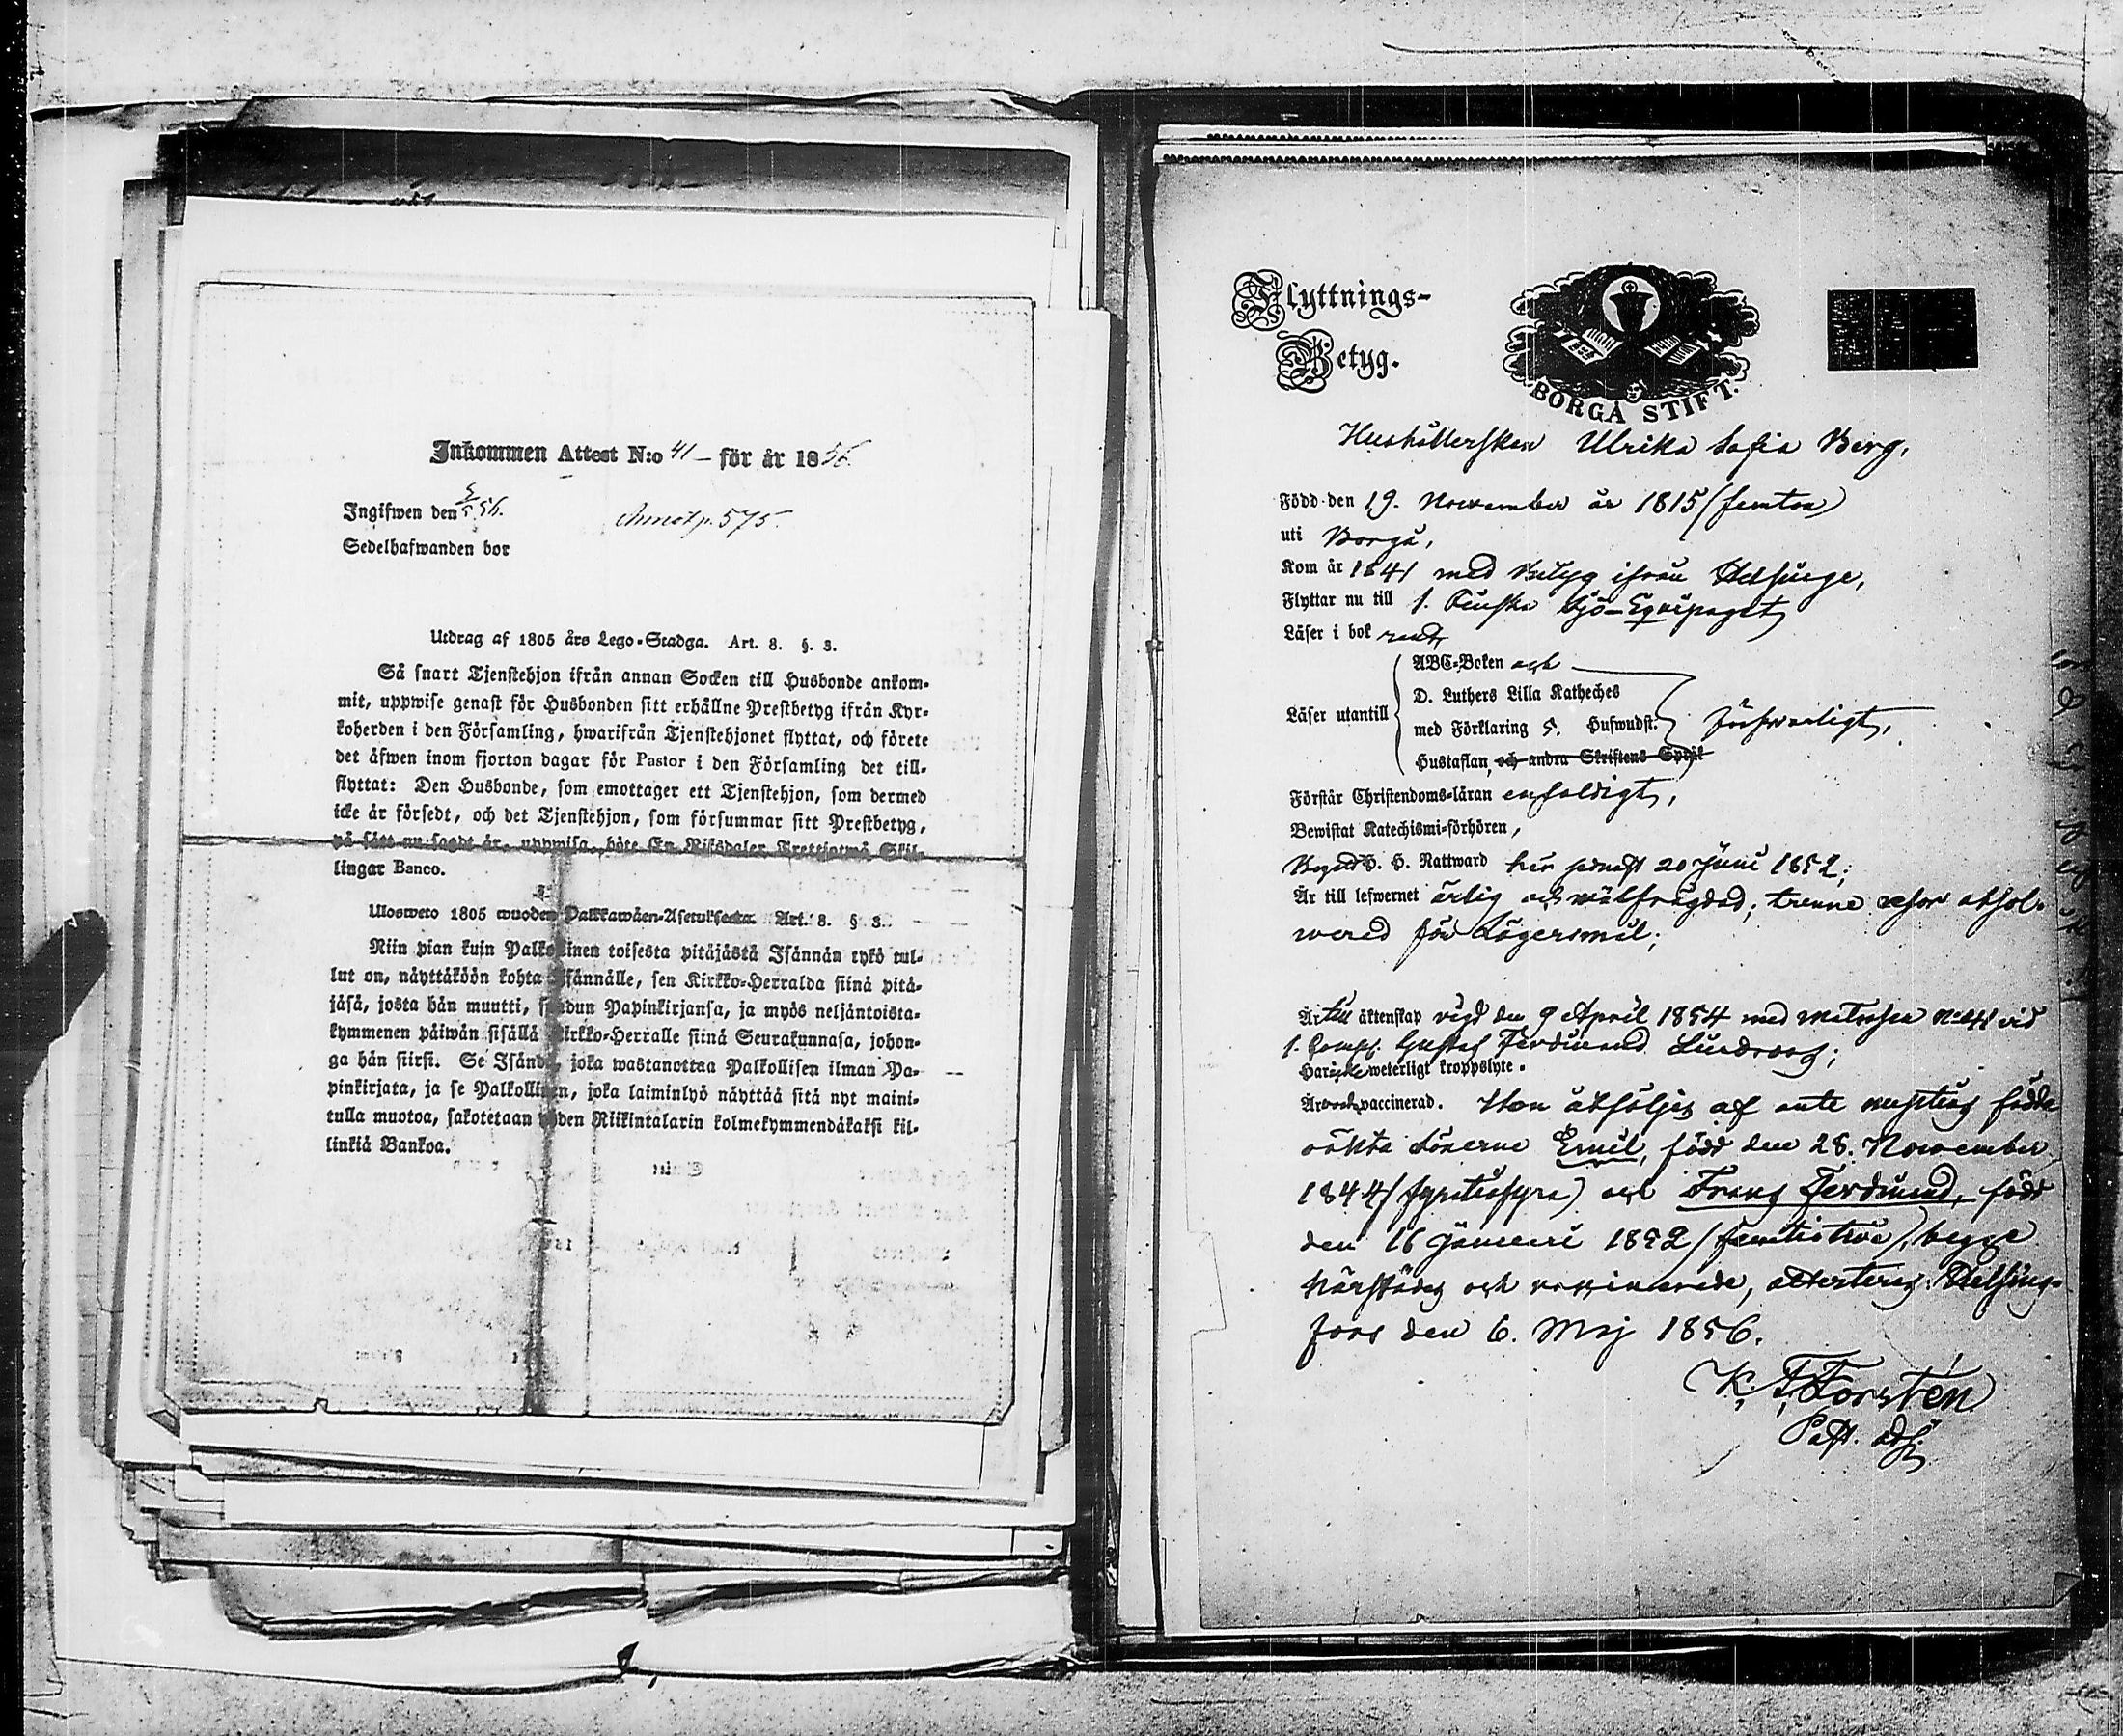 Inkommen Attest N:o 41 – för år 1856.
Ingifwen den 56.
Annot p. 575.
Sedelhafwanden bor
Utdrag af 1805 års Lego-Stadga. Art. 8. §. 3.
Så snart Tjenstehjon ifrån annan Socken till Husbonde ankom-
mit, uppwise genast för Husbonden sitt erhållne Prestbetyg ifrån Kyr-
koherden i den Församling, hwarifrån Tjenstehjonet flyttat, och förete
det äfwen inom fjorton dagar för Pastor i den Församling det till-
flyttat: Den Husbonde, som emottager ett Tjenstehjon, som dermed
icke är försedt, och det Tjenstehjon, som försummar sitt Prestbetyg,
på sätt nu sagdt är, uppwisa, böte En Riksdaler Trettjotwå Skil-
lingar Banco.
Ulosweto 1805 wuoden Palkkawäen-Asetuksesta. Art. 8. § 3.
Niin pian kuin Palkollinen toisesta pitäjästä Isännän tykö tul-
lut on, näyttäköön kohta Isännälle, sen Kirkko-Herralda siinä pitä-
jäsä, josta hän muutti, saadun Papinkirjansa, ja myös neljäntoista-
kymmenen päiwän sisällä Kirkko-Herralle siinä Seurakunnasa, johon-
ga hän siirsi. Se Isändä, joka wastanottaa Palkollisen ilman Pa-
pinkirjata, ja se Palkollinen, joka laiminlyö näyttää sitä nyt maini-
tulla muotoa, sakotetaan yhden Riikintalarin kolmekymmendäkaksi kil-
linkiä Bankoa.
Flyttnings-
Betyg.
BORGÅ STIFT.
Hushållerskan Ulrika Sofia Berg,
Född den 19. November år 1815 (femton)
uti Borgå,
Kom år 1841 med Betyg ifrån Helsinge,
Flyttar nu till 1. Finska Sjö-Equipaget
Läser i bok rent,
ABC-Boken och
D. Luthers Lilla Katheches
Läser utantill
med Förklaring 5. Hufwudst.
försvarligt,
Hustaflan, och andra Skriftens Språk
Förstår Christendoms-läran enfaldigt,
Bewistat Katechismi-förhören,
Begått H. H. Nattward här senast 20 Juni 1852;
Är till lefwernet ärlig och wälfrägdad; trenne resor absol-
werad för Lägersmål;
Är till äktenskap vigd den 9 April 1854 med matrosen No 41 vid
1. Comp. Gustaf Ferdinand Lindroos;
Har icke weterligt kroppslyte.
Är och vaccinerad. Hon åtföljes af ante nuptias födda
oäkta Sönerne Emil, född den 28. November
1844 (fyratiofyra) och Frans Ferdinand, född
den 16 Januari 1852 (femtiotvå), begge
härstädes och vaccinerade, attesteras. Helsing-
fors den 6. Maj 1856.
K. F. Forstén
Past. adj.